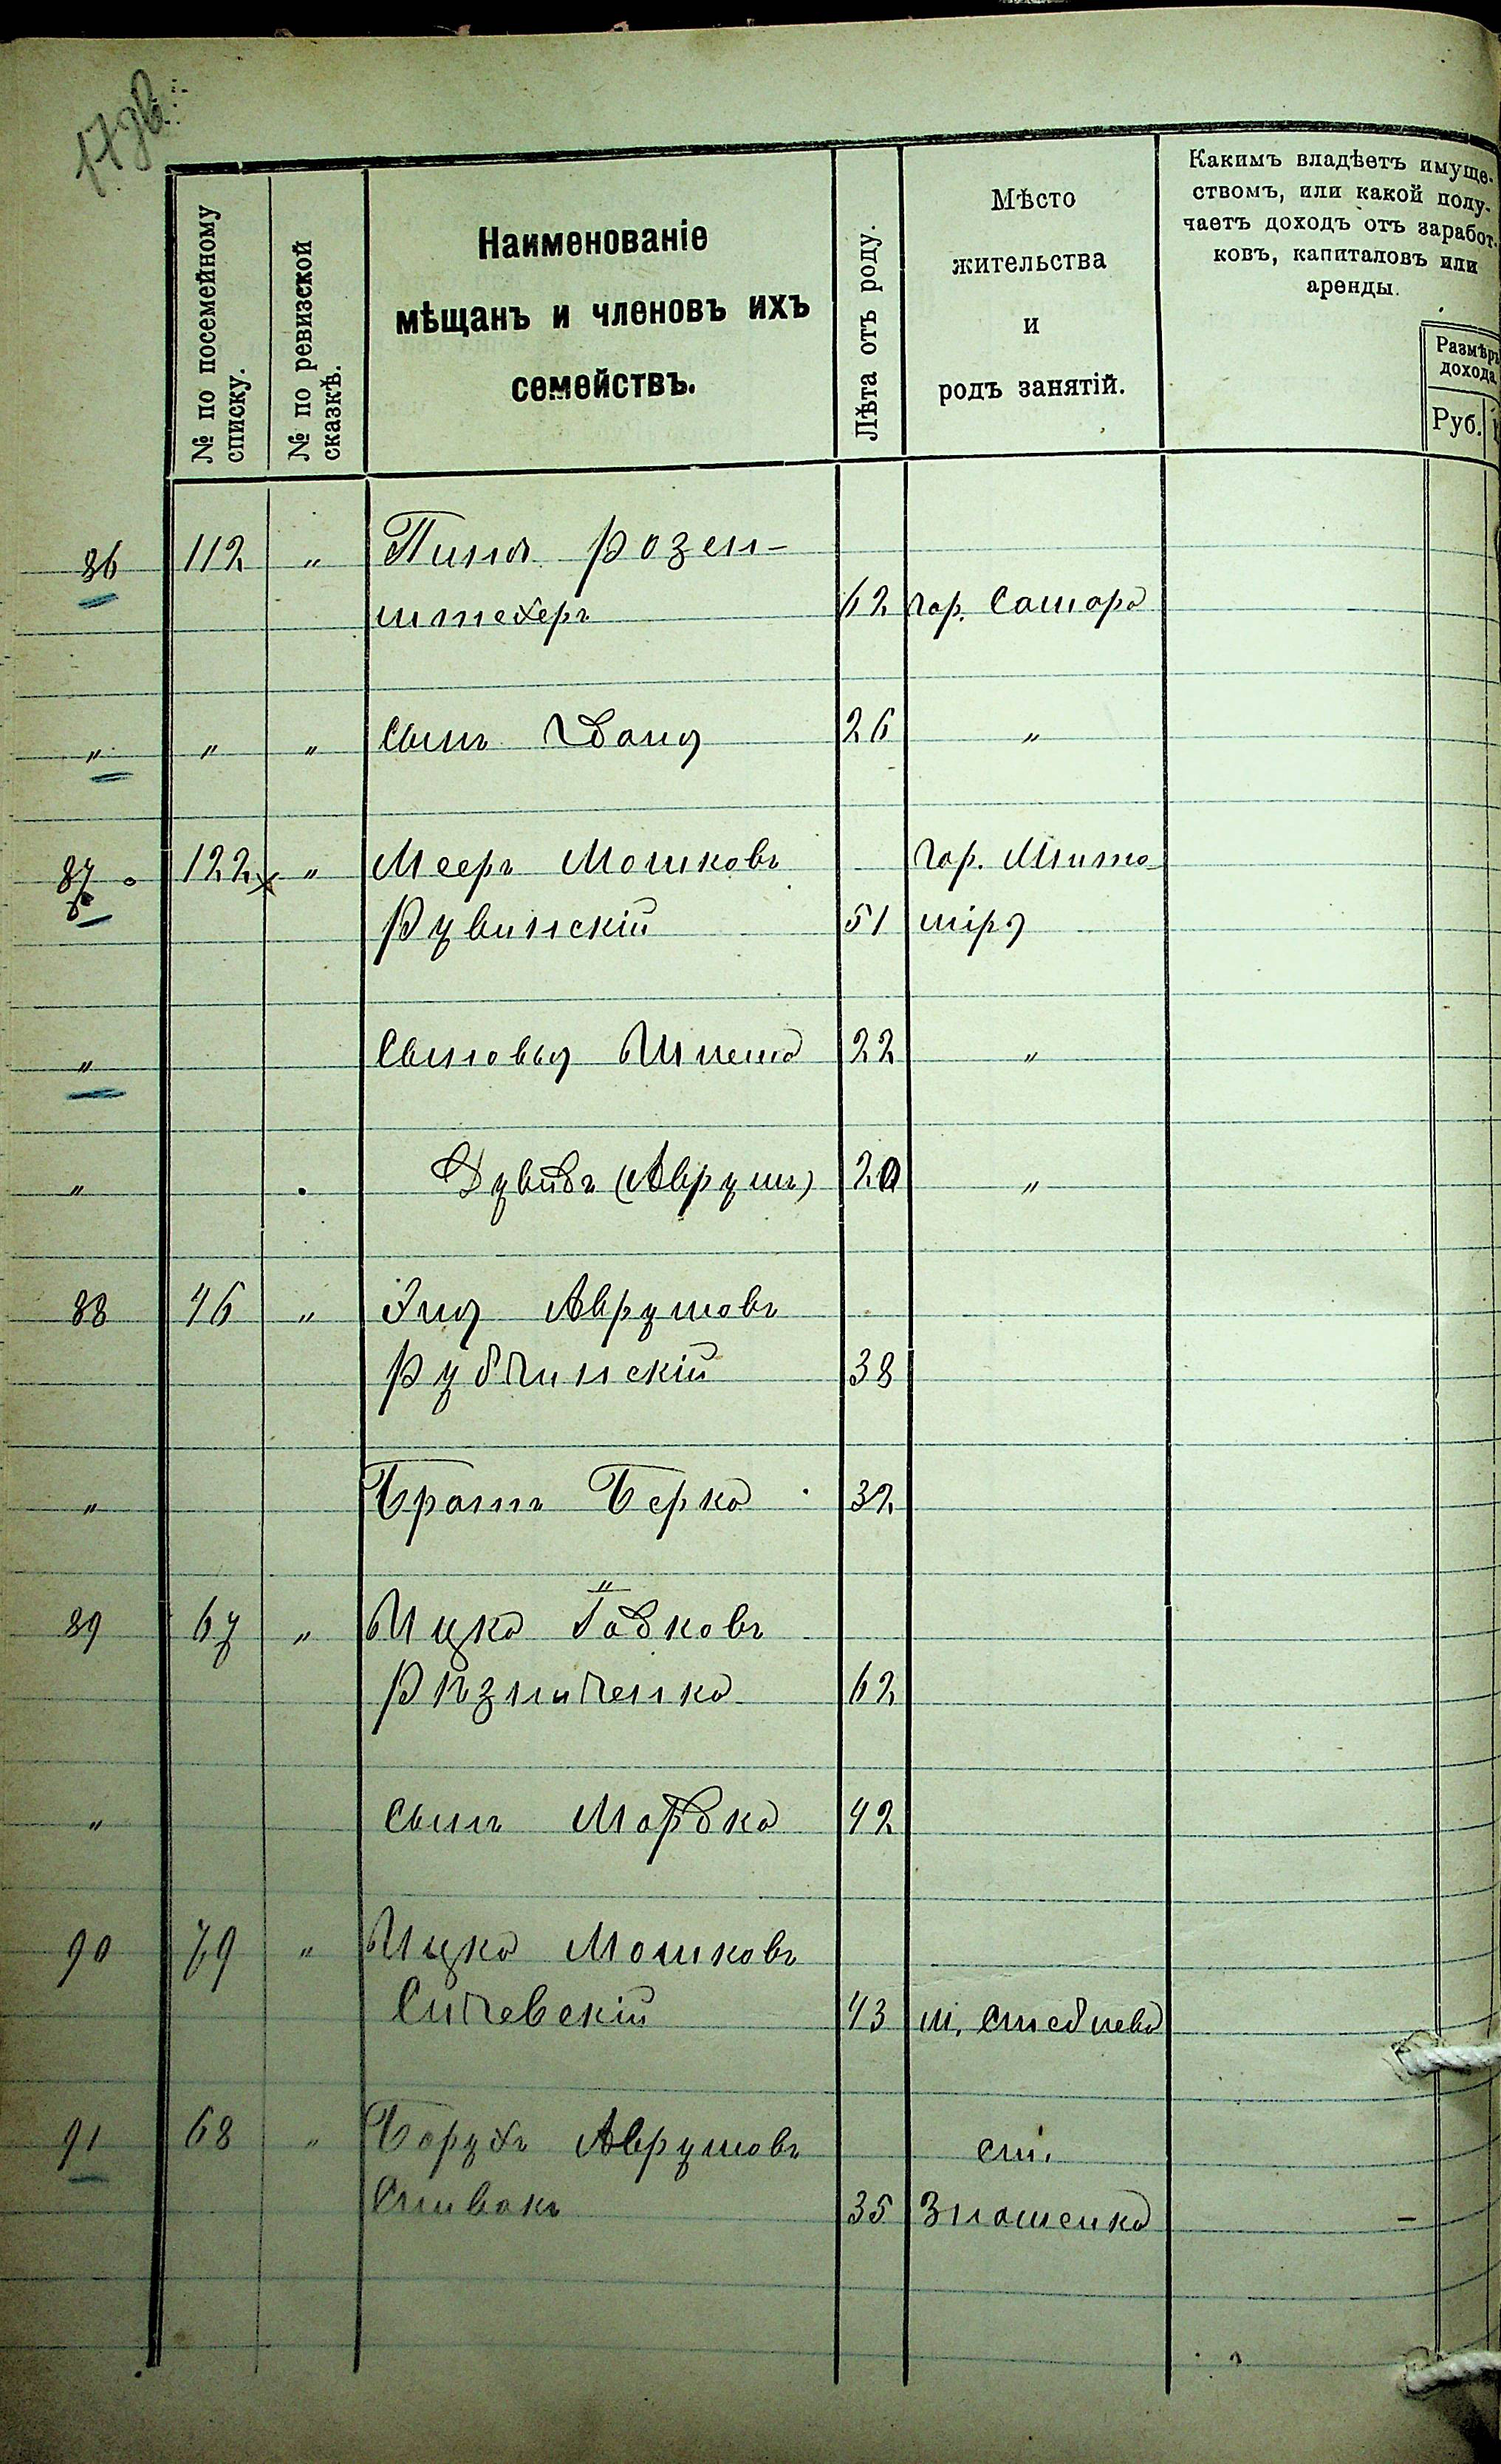 17 зв.
№ по посемейному
списку.
№ по ревизской
сказкѣ.
Наименованіе
мѣщанъ и членовъ ихъ
семействъ.
Лѣта отъ роду.
Мѣсто
жительства
и
родъ занятій.
Какимъ владѣетъ имуще-
ствомъ, или какой полу-
чаетъ доходъ отъ заработ-
ковъ, капиталовъ или
аренды.
Размѣръ
дохода
Руб.
86 112 " Пиня Розен-
штехеръ 62 гор. Самара
" " " Сынъ 26 "
87 122 " Мееръ Мошковъ гор. Жито-
Рувинскій 51 міръ
" Сыновья Шлема 22 "
" Дувидъ (Аврумъ) 20 "
88 46 " Зися Аврумовъ
Рубчинскій 38
" Братъ Берко 32
89 67 " Ицко Гавковъ
Рѣзниченко 62
" Сынъ Мордко 42
90 79 " Ицко Мошковъ
Ситчевскій 43 м. Стеблева
91 68 " Борухъ Аврумовъ ст.
Спивакъ 35 Знаменка